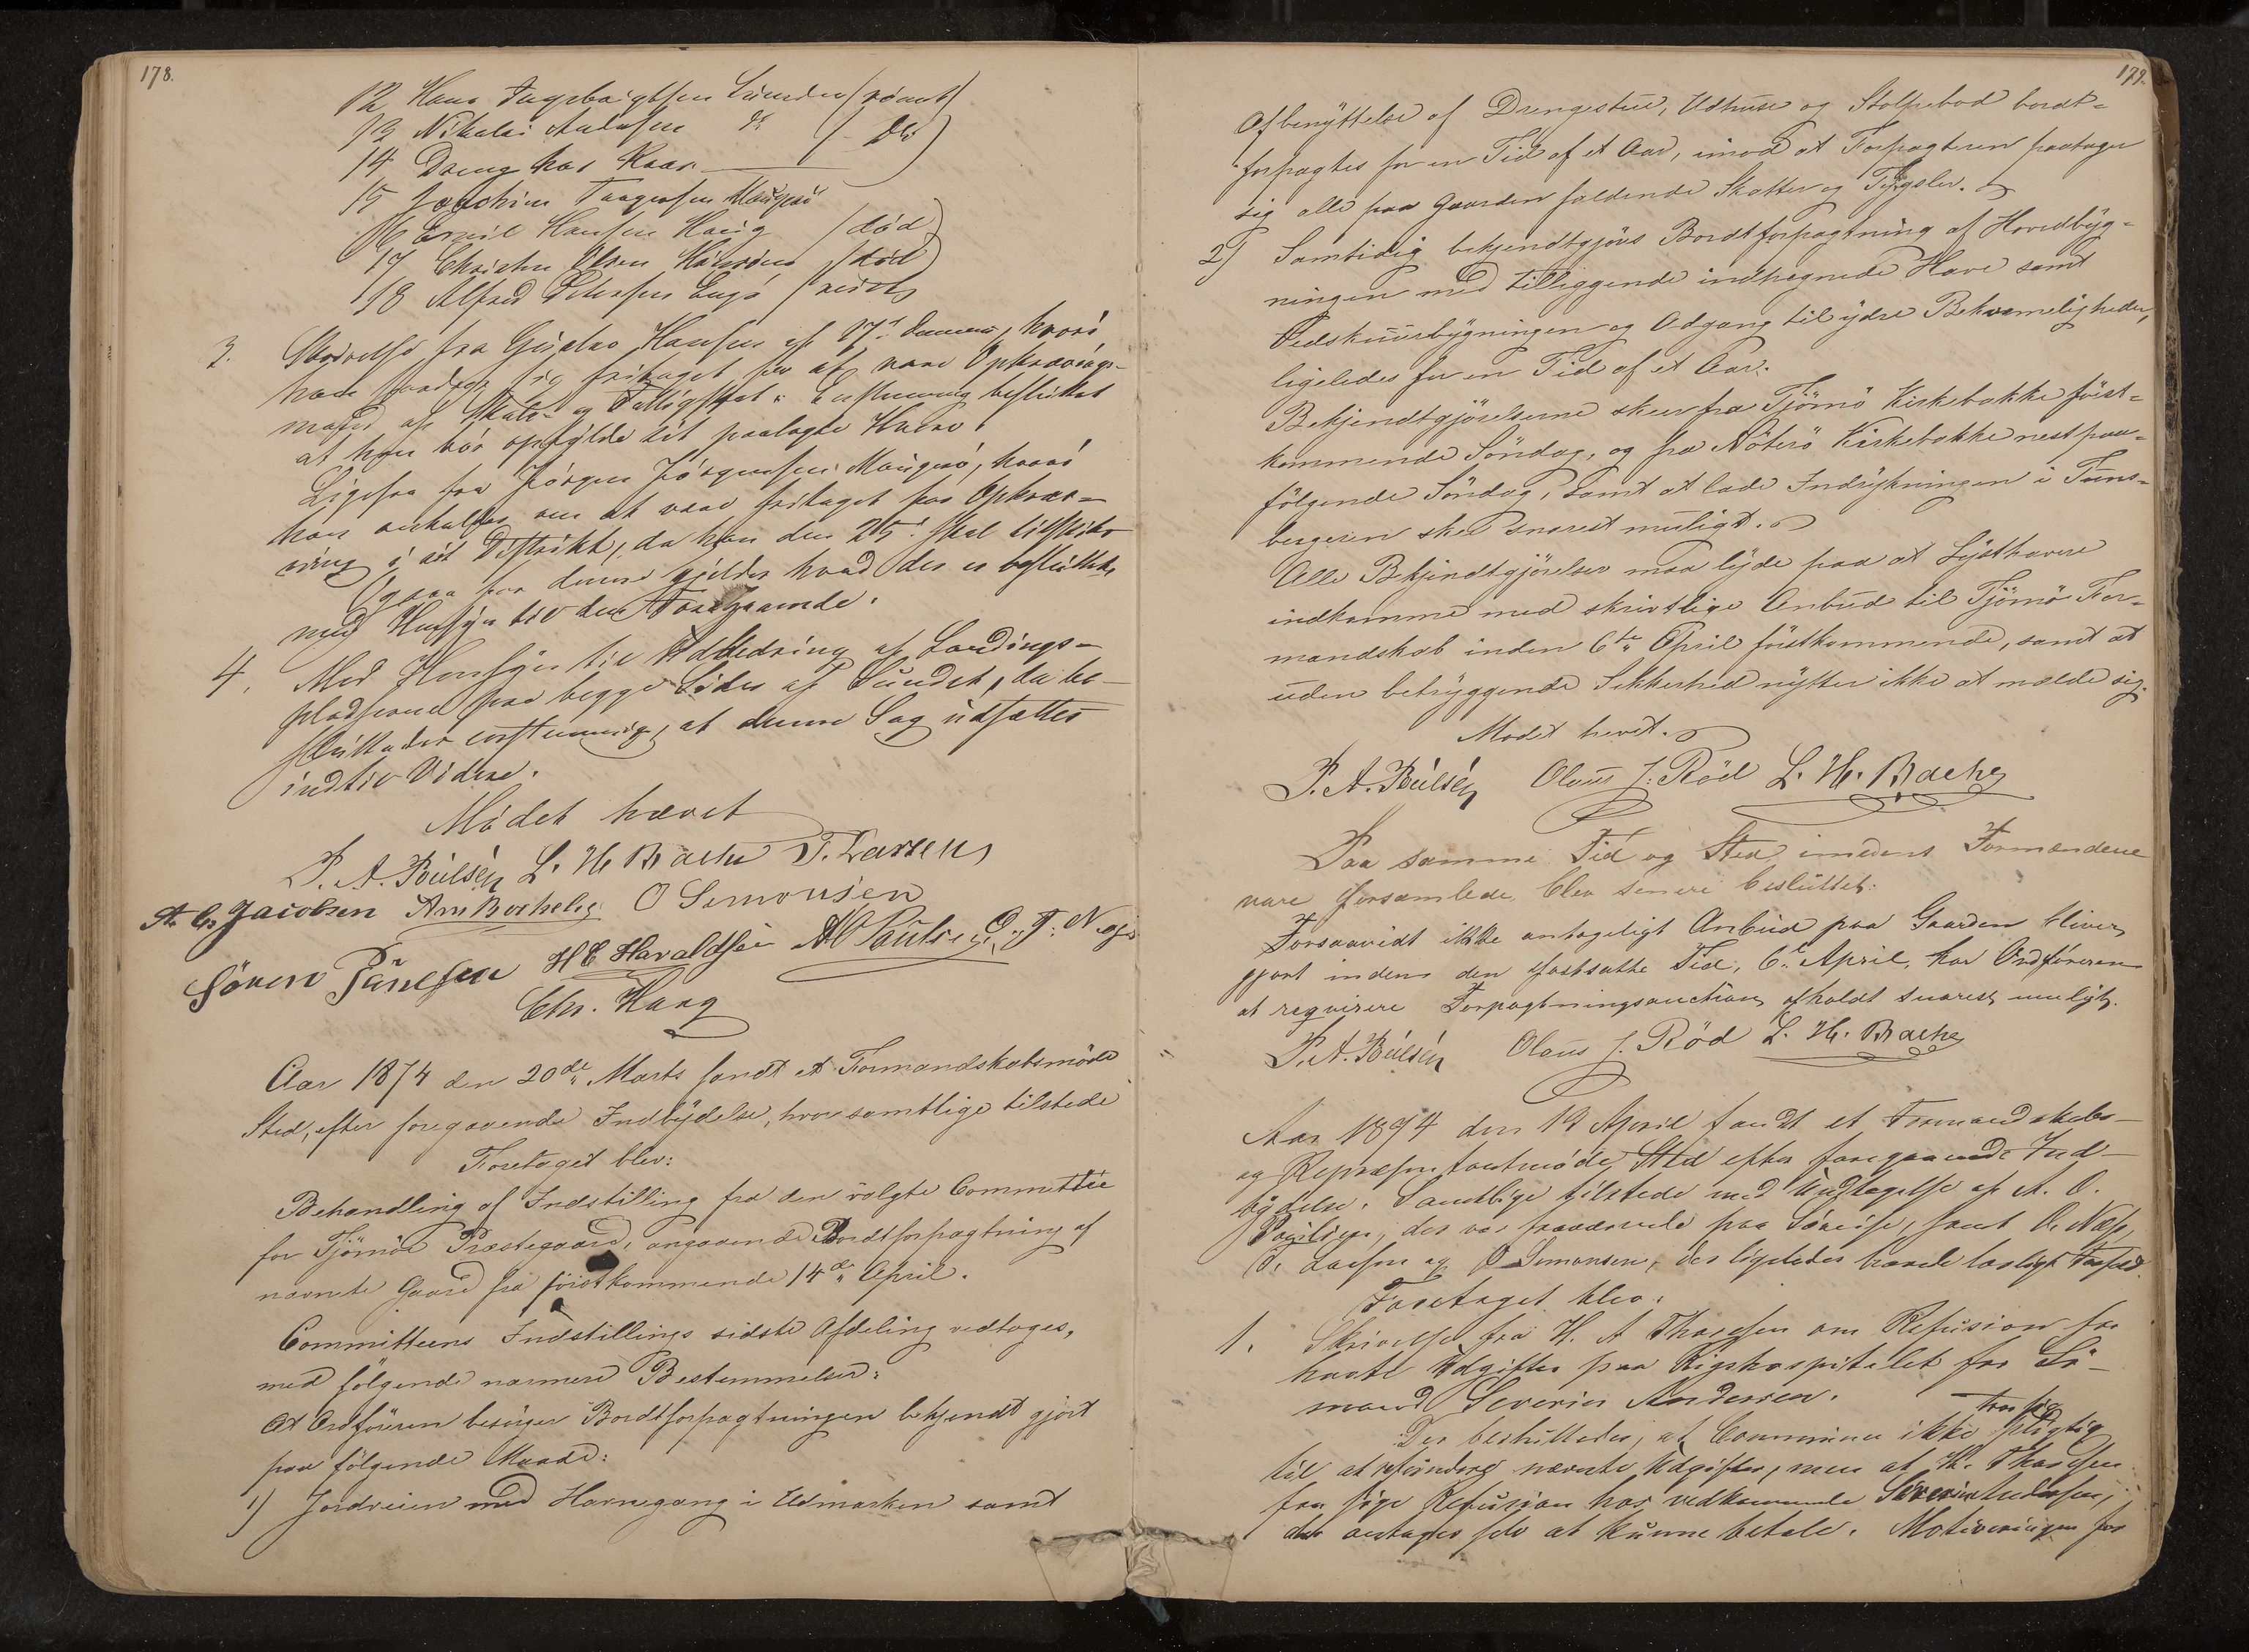 178.
12 Hans Ingebrigtsen Sunden (römt)
13 Nikolai Andersen do (- do)
14 Dreng hos Kaar
15 Joachim Taagensen Maugerö
16 Emil Hansen Haug (död)
17 Christen Olsen (död)
18 Alfred Petersen Engö (reist)
3. Skrivelse fra Gustav Hansen af 17de dennes, hvori
han sig fritaget for at være Opkrævnings-
mand af Skole- og Fattigskat. Enstemmig besluttet
at han bör opfylde sit paalagte Hverv.
Ligesaa fra Jörgen Jörgensen Maugerö, hvori
han anholder om at være fritaget for Opkræv-
ning i sit Distrikt, da han den 25de skal tilskibs
Ogsaa for denne gjelder hvad der er besluttet
med Hensyn til den Foregaaende.
4. Med Hensyn til Udbedring af Landings-
pladsene paa begge Sider af Sundet, da be-
sluttedes enstemmig, at denne Sag udsættes
indtil Videre.
Mödet hævet
P. A. Poulsén L. H. Bache T. Larsen
A. C. Jacobsen O Simonsen
Sören Paulsen H C Haraldsen A O Paulsen O. T. Næs
Chr. Haug
Aar 1874 den 20de Marts fandt et Formandskabsmöde
Sted, efter foregaaende Indbydelse, hvor samtlige tilstede
Foretaget blev:
Behandling af Indstilling fra den valgte Committee
for Tjömöe Præstegaard, angaaende Bordtforpagtning af
nævnte Gaard fra förstkommende 14de April.
Committeens Indstillings sidste Afdeling vedtages,
med fölgende nærmere Bestemmelser:
At Ordföreren besörger Bordtforpagtningen bekjendt gjort
paa fölgende Maade:
1) Jordveien med Havnegang i Udmarken samt
179.
Afbenyttelse af Drengestue, Udhuse og Stolpebod bordt-
forpagtes for en Tid af et Aar, imod at Forpagteren paatager
sig alle paa Gaarden faldende Skatter og Tyngsler.
2) Samtidig bekjendtgjöres Bordtforpagtning af Hovedbyg-
ningen med tilliggende indhegnede Have samt
Vedskuurbygningen og Adgang til ydre Bekvemeligheder,
ligeledes for en Tid af et Aar.
Bekjendtgjörelserne skeer fra Tjömö Kirkebakke först-
kommende Söndag, og fra Nöterö Kirkebakke nest paa-
fölgende Söndag, samt at lade Indrykningen i Tuns-
bergeren skee snarest muligt.
Alle Bekjendtgjörelser maa lyde paa at Lysthavere
indkomme med skrivtlige Anbud til Tjömö For-
mandskab inden 6te April förstkommende, samt at
uden betryggende Sikkerhed nytter ikke at melde sig.
Mödet hevet.
P. A. Poulsén Olaus J. Röd L. H. Bache
Paa samme Tid og Sted imedens Formændene
vare forsamlede blev senere besluttet:
Forsaavidt ikke antageligt Anbud paa Gaarden bliver
gjort inden den fastsatte Tid, 6te April, har Ordföreren
at reqvirere Forpagtningsauction afholdt snarest muligt.
P. A. Poulsén Olaus J. Röd L. H. Bache
Aar 1874 den 19 April fandt et Formandskabs-
og Repræsentantmöde Sted efter foregaaende Ind-
bydelse. Samtlige tilstede med Undtagelse af A. O.
Paulsen, der var fraværende paa Söreise, samt O. Næs,
T. Larsen og O Simonsen, der ligeledes havde lovligt Forfald.
Foretaget blev:
1. Skrivelse fra H. A Thoresen om Refusion for
havte Udgifter paa Rigshospitalet for Sö-
mand Severin Andersen.
Der besluttedes, at Communen ikke troer sig pligtig
til at refundere nævnte Udgifter, men at H. Thoresen
faa söge Refusion hos vedkommende Severin Andersen,
der antages selv at kunne betale. Motiveringen for